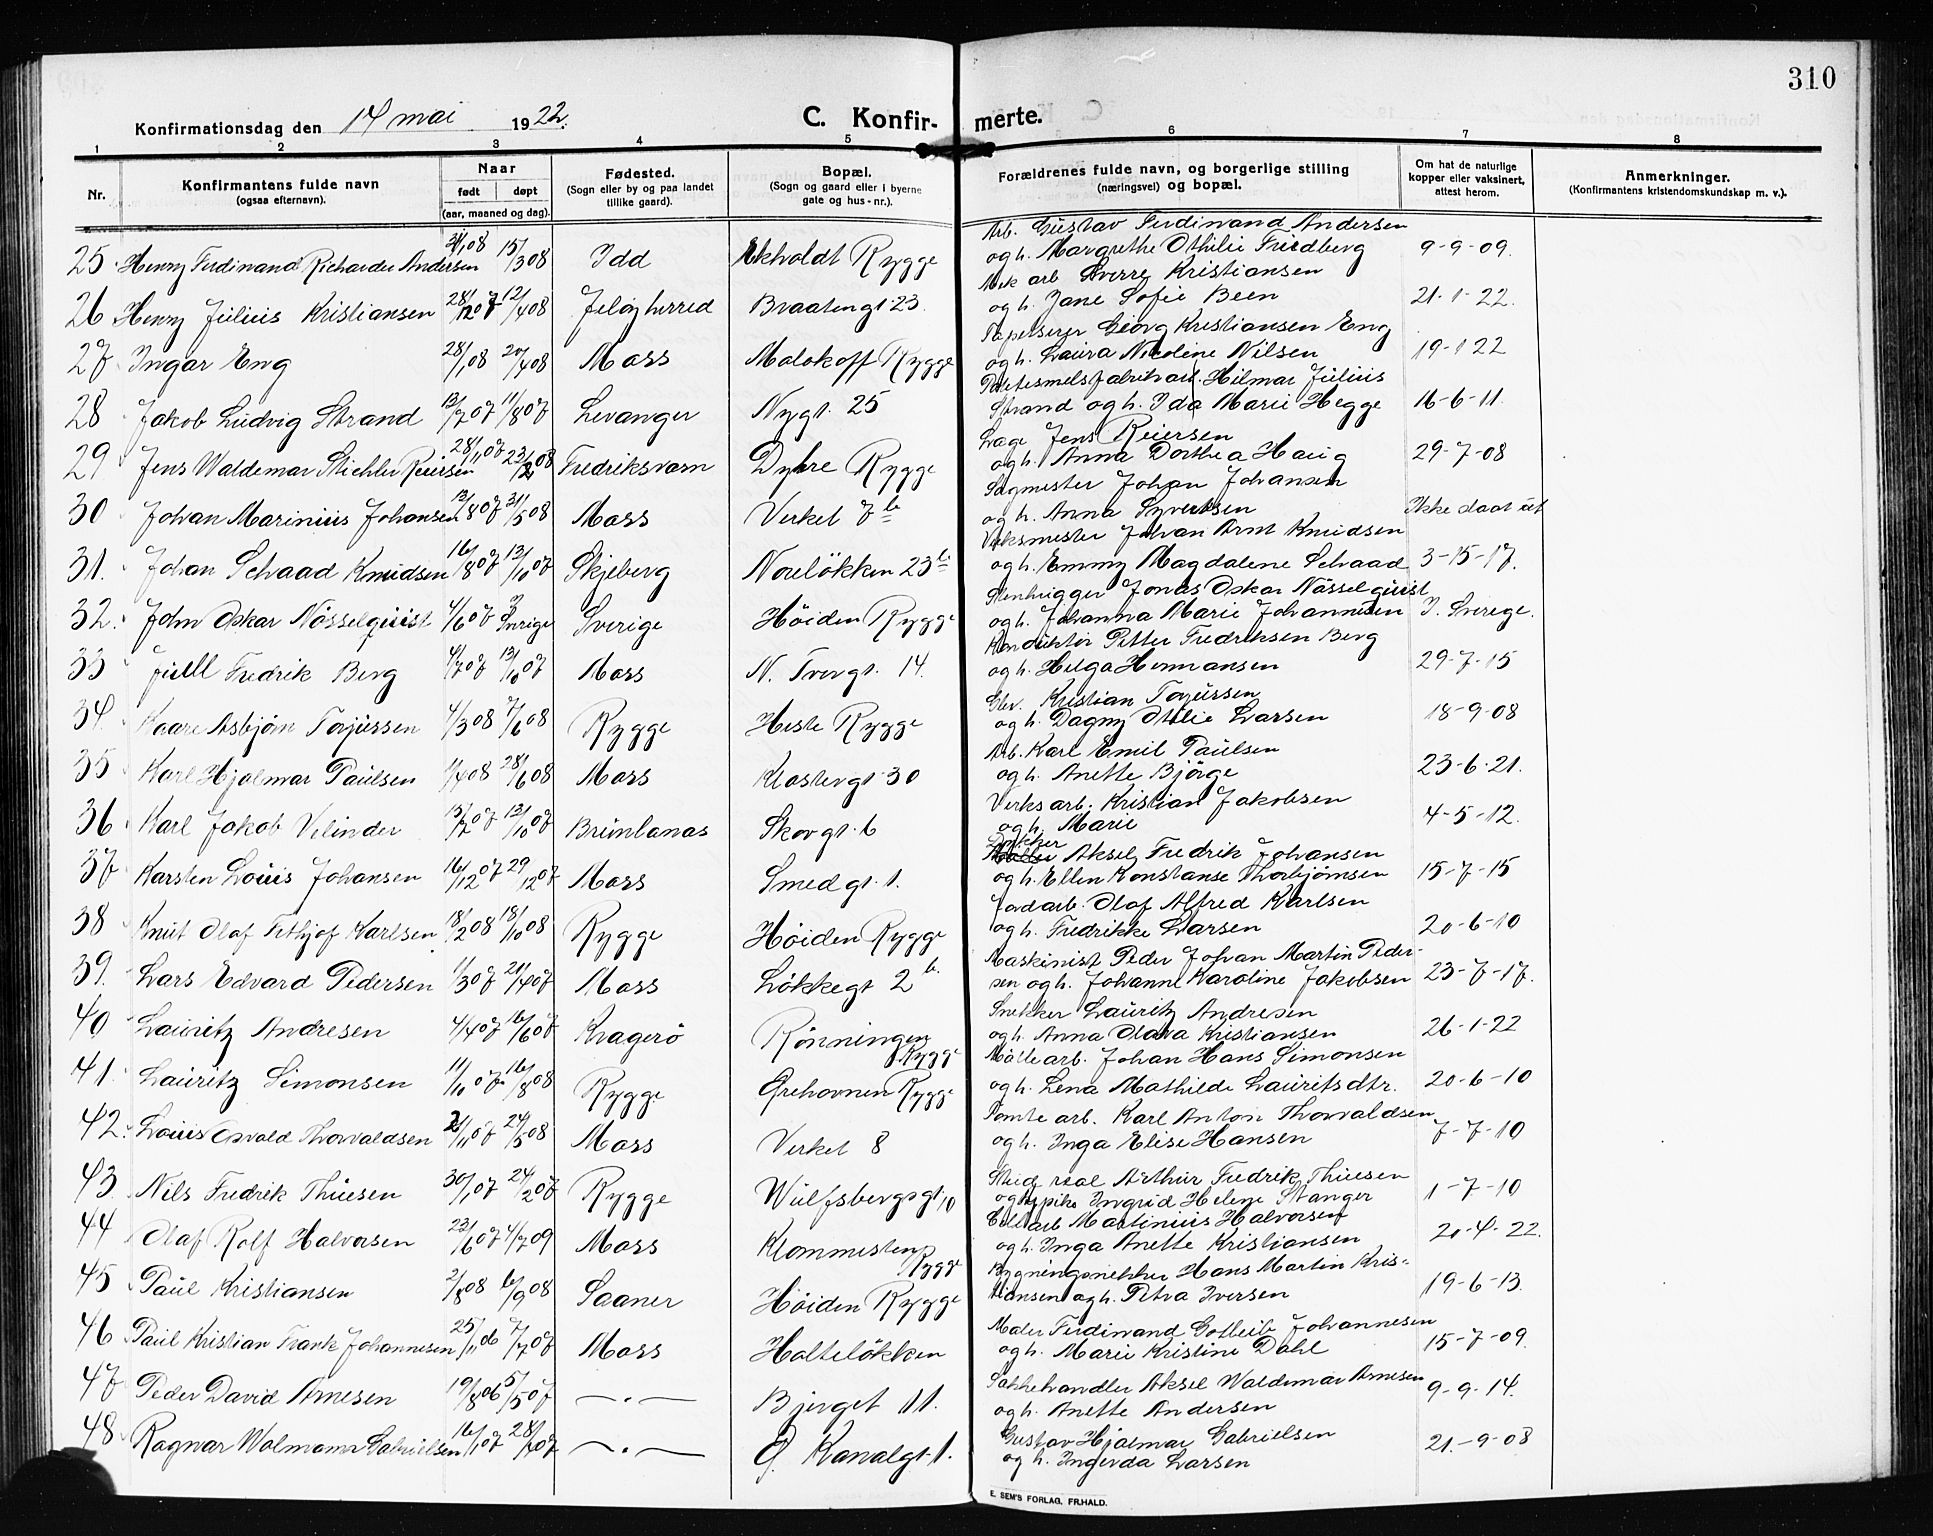 310
Konfirmationsdag den 14 mai 1922.
C. Konfirmerte.
1 2 3 4 5 6 7 8
Nr.
Konfirmantens fulde navn
(ogsaa efternavn).
Naar
født døpt
(aar, maaned og dag).
Fødested.
(Sogn eller by og paa landet
tillike gaard).
Bopæl.
(Sogn og gaard eller i byerne
gate og hus-nr.).
Forældrenes fulde navn, og borgerlige stilling
(næringsvei) og bopæl.
Om hat de naturlige
kopper eller vaksinert,
attest herom.
Anmerkninger.
(Konfirmantens kristendomskundskap m. v.).
25. Henry Ferdinand Richarder Andersen 15/3 08 Idd Ekholdt Rygge Arb. Gustav Ferdinand Andersen
og h. Margrethe Othilie Friedberg 9-9-09.
26 Henry Julius Kristiansen 28/12 07 12/4 08 Jeløy herred Braatengt 23. Mek arb Sverre Kristiansen
og h. Jane Sofie Been 21-1-22.
27 Ingar Eng 28/1 08 20/4 08 Moss Malakoff Rygge Tapetserer Georg Kristiansen Eng
og h. Laura Nicoline Nilsen 19-1 22
28 Jakob Ludvig Strand 13/7 07 11/8 07 Levanger Nygt. 25 Hilmar Julius
Strand og h. Ida Marie Hegge 16-6-11.
29 Jens Waldemar Stichler Reiersen 28/11 07 23/2 08 Fredriksværn Dybre Rygge Læge Jens Reiersen
og h. Anna Dorthea Haug 29-7-08
30 Johan Marinius Johansen 13/8 07 31/5 08 Moss Verket 7 b Sagmester Johan Johansen
og h. Anna Syvertsen Ikke slaat ut
31. Johan Schaad Knudsen 16/8 07 13/10 07 Skjeberg Noreløkken 23 b Verksmester Johan Arnt Knudsen
og h. Emmy Magdalene Schaad 3-15-17.
32. John Oskar Nösselquist 4/6 07 Sverige Sverige Höiden Rygge Stenhugger Jonas Oskar Nösselquist
og h. Johanna Marie Johannesen I. Sverege.
33 Juell Fredrik Berg 4/7 07 13/10 07 Moss N. Tvergt. 14. Konduktör Petter Fredriksen Berg
og h. Helga Hermansen 29-7-15
34. Kaare Asbjörn Torjussen 4/3 08 7/6 08 Rygge Heste Rygge Kristian Torjussen
og h. Dagny Otilie Larsen 18-9-08
35 Karl Hjalmar Paulsen 1/4 08 28/6 08 Moss Klostergt 30 Arb. Karl Emil Paulsen
og h. Anette Björge 23-6-21.
36. Karl Jakob Velinder 13/10 07 Brunlanæs Skovgt. 6 Verks arb. Kristian Jakobsen
og h. Marie 4-5-12.
37 Karsten Louis Johansen 16/12 07 29/12 07 Moss Smedgt. 1. Aksel Fredrik Johansen
og h. Ellen Konstanse Thorbjörnsen 15-7-15
38 Knut Olaf Fethjof Karlsen 18/2 08 18/10 08 Rygge Höiden Rygge Jordarb. Olaf Alfred Karlsen
og h. Fredrikke Larsen 20-6-10
39. Lars Edvard Pedersen 1/3 07 21/4 07 Moss Løkkegt 2 b. Maskinist Peder Johan Martin Peder-
sen og h. Johanne Karoline Jakobsen 23-7-17.
40 Lauritz Andresen 4/4 07 16/6 07 Kragerö Rönningen
Rygge Snekker Lauritz Andresen
og h. Anna Olava Kristiansen 26-1-22
41. Lauritz Simonsen 11/11 07 16/8 08 Rygge Grehovnen Rygge Mölle arb. Johan Hans Simonsen
og h. Lena Mathilde Lauritsdtr. 20-6-10
42. Louis Osvald Thorvaldsen 24/5 08 Moss Verket 8 Tomte arb. Karl Anton Thorvaldsen
og h. Inga Elise Hansen 7-7-10
43. Nils Fredrik Thuesen 30/1 07 24/2 07 Rygge Wulfsbergsgt 10 Arthur Fredrik Thuesen
og Ingrid Helene Stanger 1-7-10
44 Olaf Rolf Halvorsen 23/6 07 4/7 09 Moss Klommesten
Rygge Martinius Halvorsen
og h. Inga Anette Kristiansen 20-4-22.
45 Paul Kristiansen 2/8 08 6/9 08 Saaner Höiden Rygge Bygningsnekker Hans Martin Kris-
tiansen og h. Petra Iversen 19-6-13.
46 Paul Kristian Frank Johannesen 25/11 06 7/7 07 Moss Holteløkken Maler Ferdinand Gotleib Johannesen
og h. Marie Kristine Dahl 15-7-09.
47 Peder David Arnesen 19/8 06 5/5 07 —·— Bjerget 11. Aksel Waldemar Arnesen
og h. Anette Andersen 9-9-14.
48. Ragnar Wolmann Gabrielsen 16/1 07 28/4 07 —·— G. Kanalgt. 1. Gustav Hjalmar Gabrielsen
og h. Ingerda Larsen 21.-9-08
E. SEM'S FORLAG, FR.HALD.